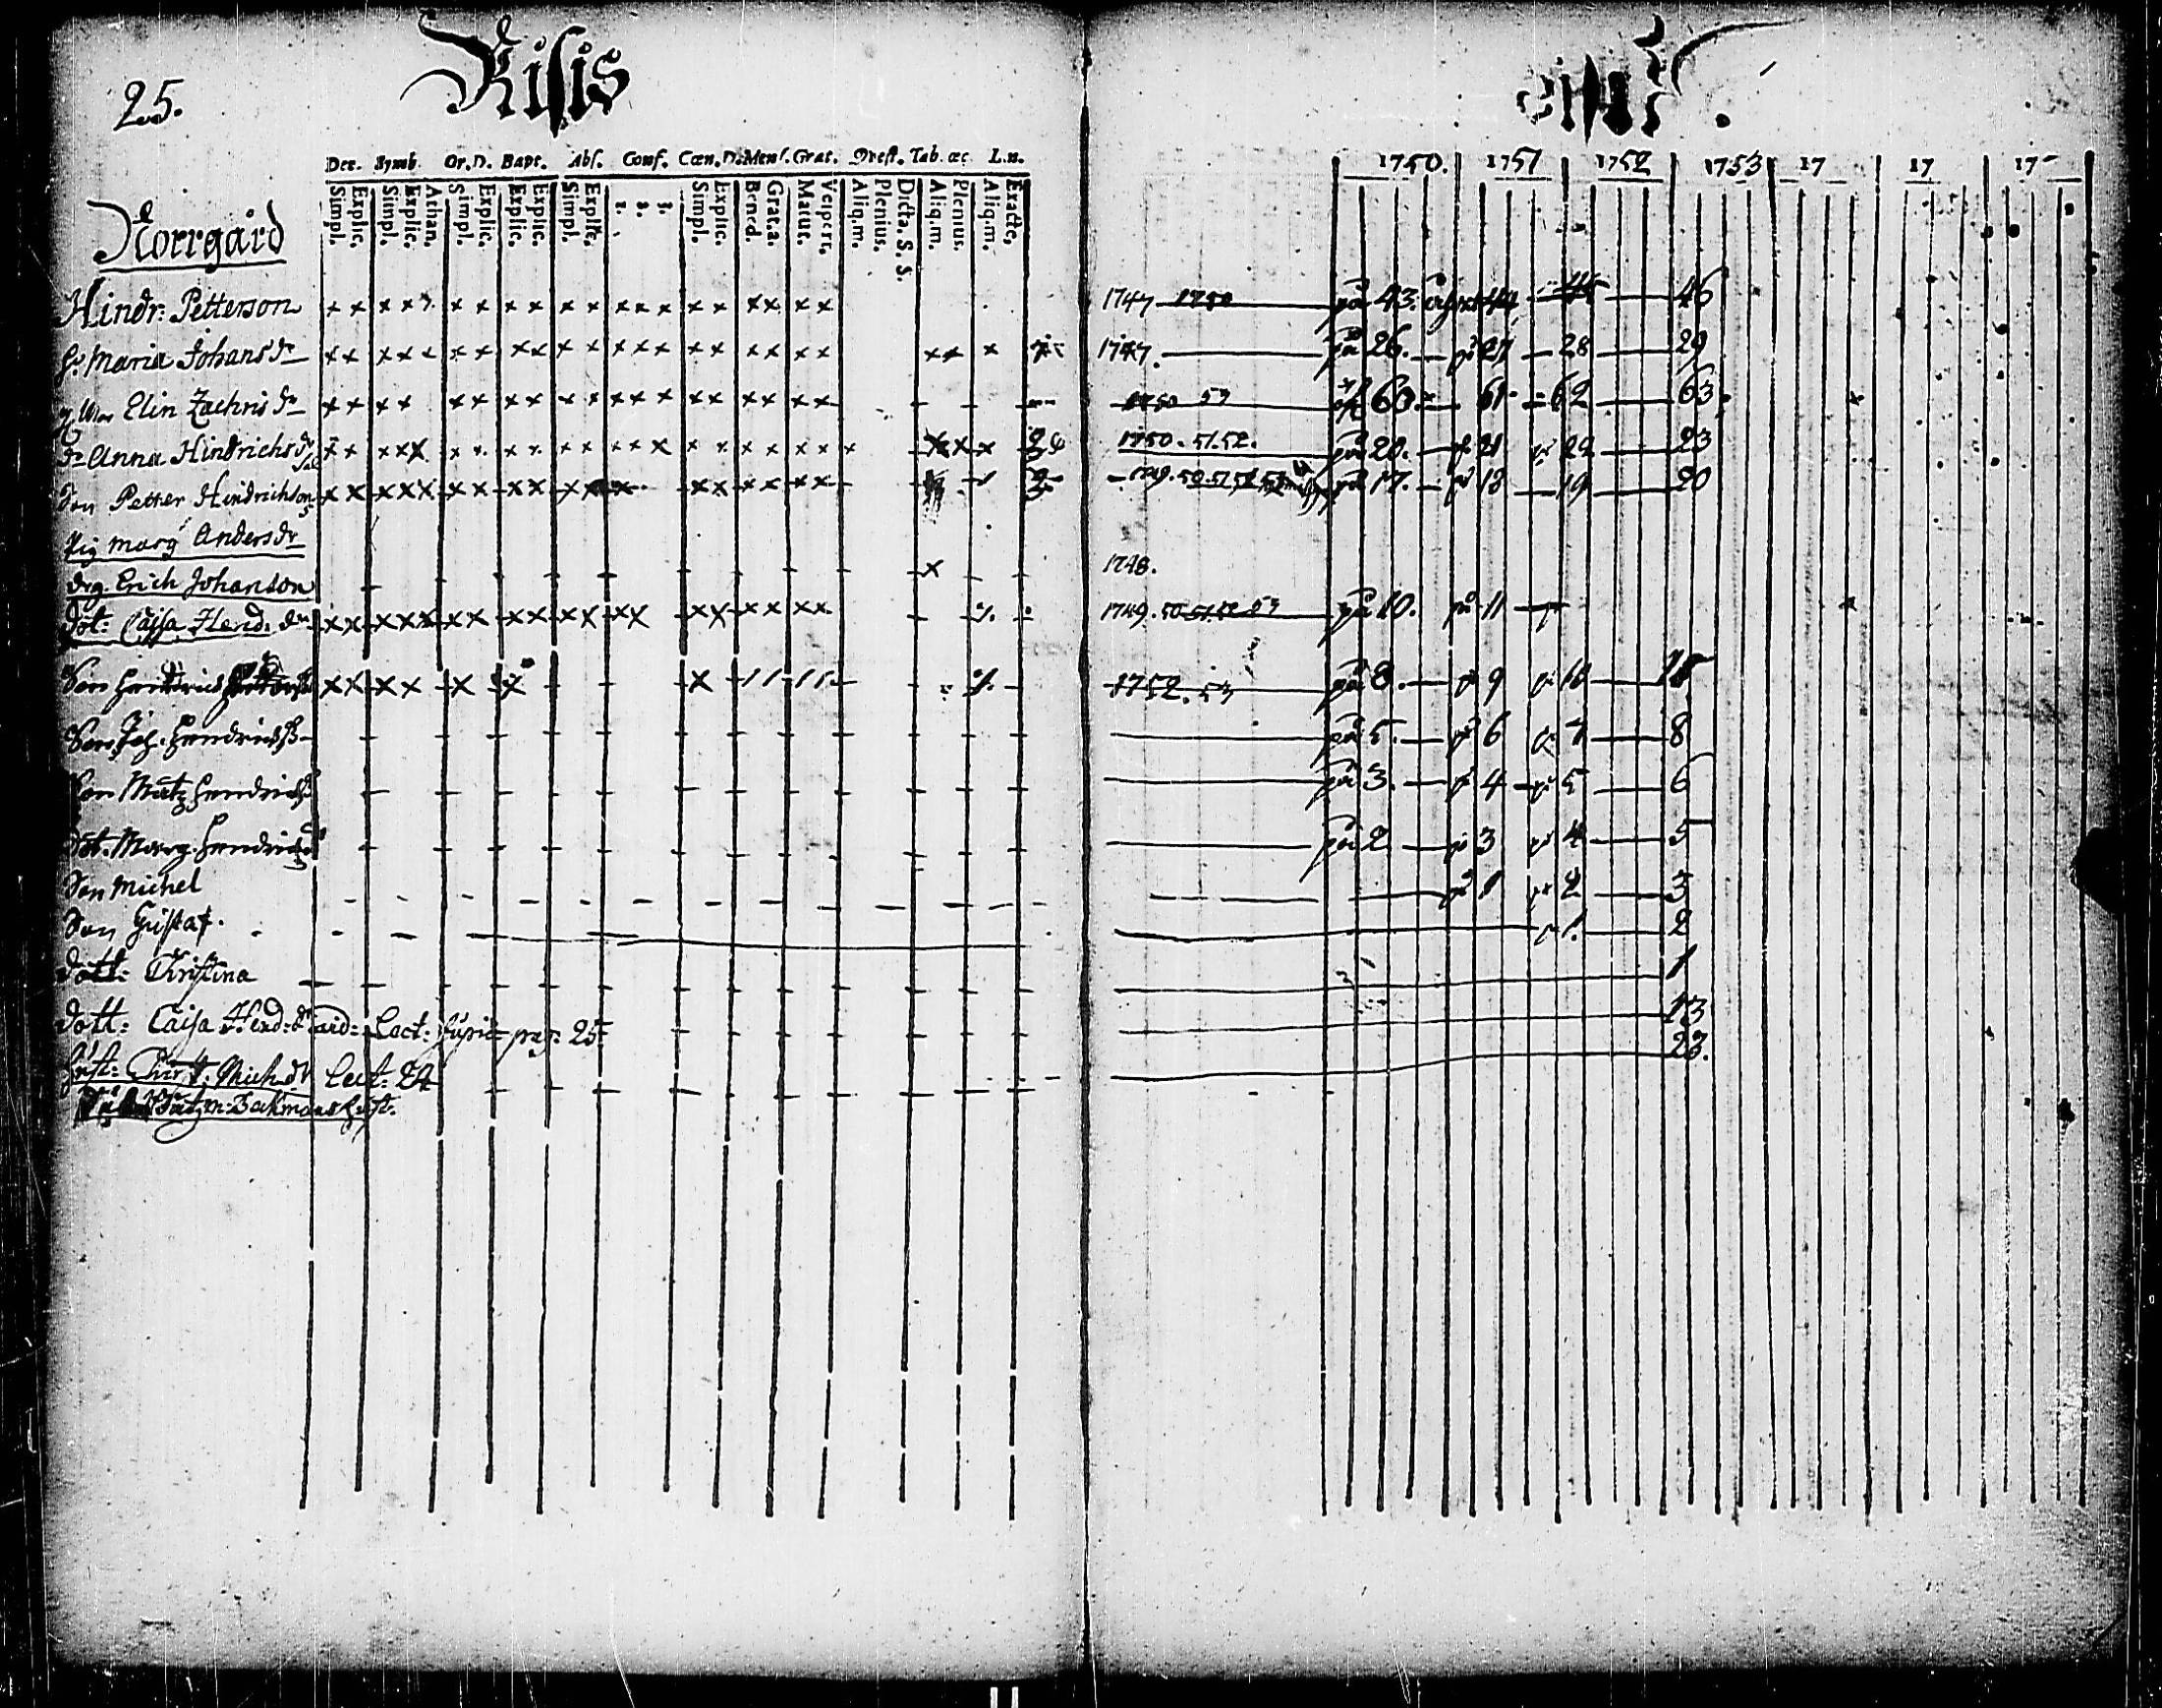 25.
Risis
Dec. Symb. Or. D. Bapt. Abs. Conf. Cœn. D. Mens. Grat. Qvest. Tab. œc L. n.
Simpl. Explic. Simpl. Explic. Athan. Simpl. Explic. Explic. Explic. Simpl. Explic. 1. 2. 3. Simpl. Explic. Bened. Grat. a. Matut. Vespert. Aliq.m. Plenius. Dicta. S. S. Aliq.m. Plenius. Aliq.m. Exacte.
1750. 1751 1752 1753 17 17 17
Norrgård
Hindr: Petterson 1747 1750 på 43. 44 45 46
h: Maria Johans dr 1747. på 26. på 27 28 29
Elin Zachris dr 1750 53 60. 61 62 63
dr Anna Hindrichs dr 1750. 51. 52. på 20. på 21 på 22 23
Son Petter Hindrichson 1749. 50. 51 52 53 på 17. på 18 19 20
Pig marg Anders dr
drg. Erich Johanson 1748.
dot: Caisa Hend: dr 1749. 50 51 52 53 på 10. på 11
Son Hendrich 1752. 53 på 8. på 9 på 10 11
Son Joh. Hendrichs på 5. på 6 på 7 8
Son Matz Hendrichs på 3. på 4 på 5 6
dot. Marg. Hendrichs på 2 på 3 på 4 5
Son Michel på 1 på 2 3
Son Gustaf. på 1. 2
dott: Christina 1
dott: Caisa Hend: dr Lect: supra pag: 25 13
Hust: Mich dr Lect: 24 23.